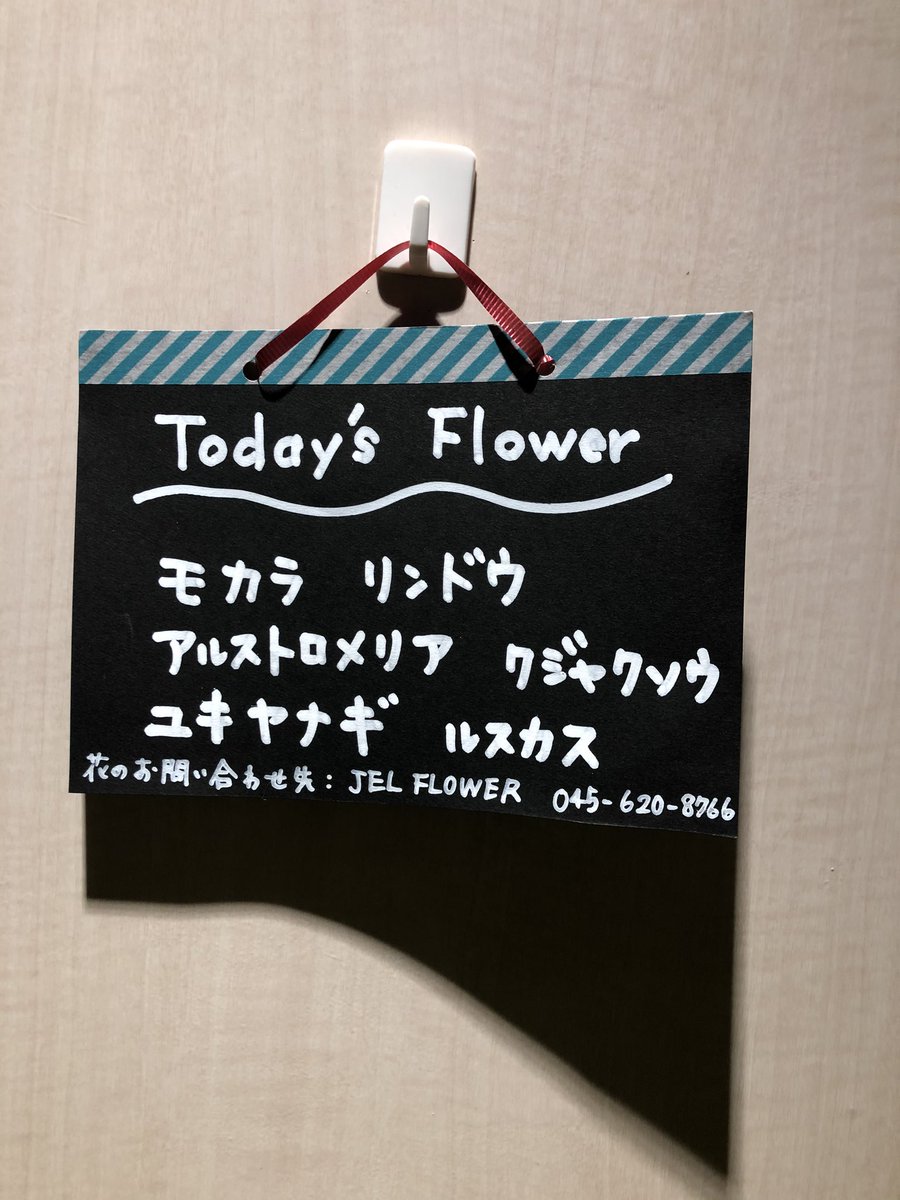 Today's Flower
モカラ リンドウ
アルストロメリア クジャクソウ
ユキヤナギ ルスカス
花のお問い合わせ先: JEL FLOWER 045-620-8766